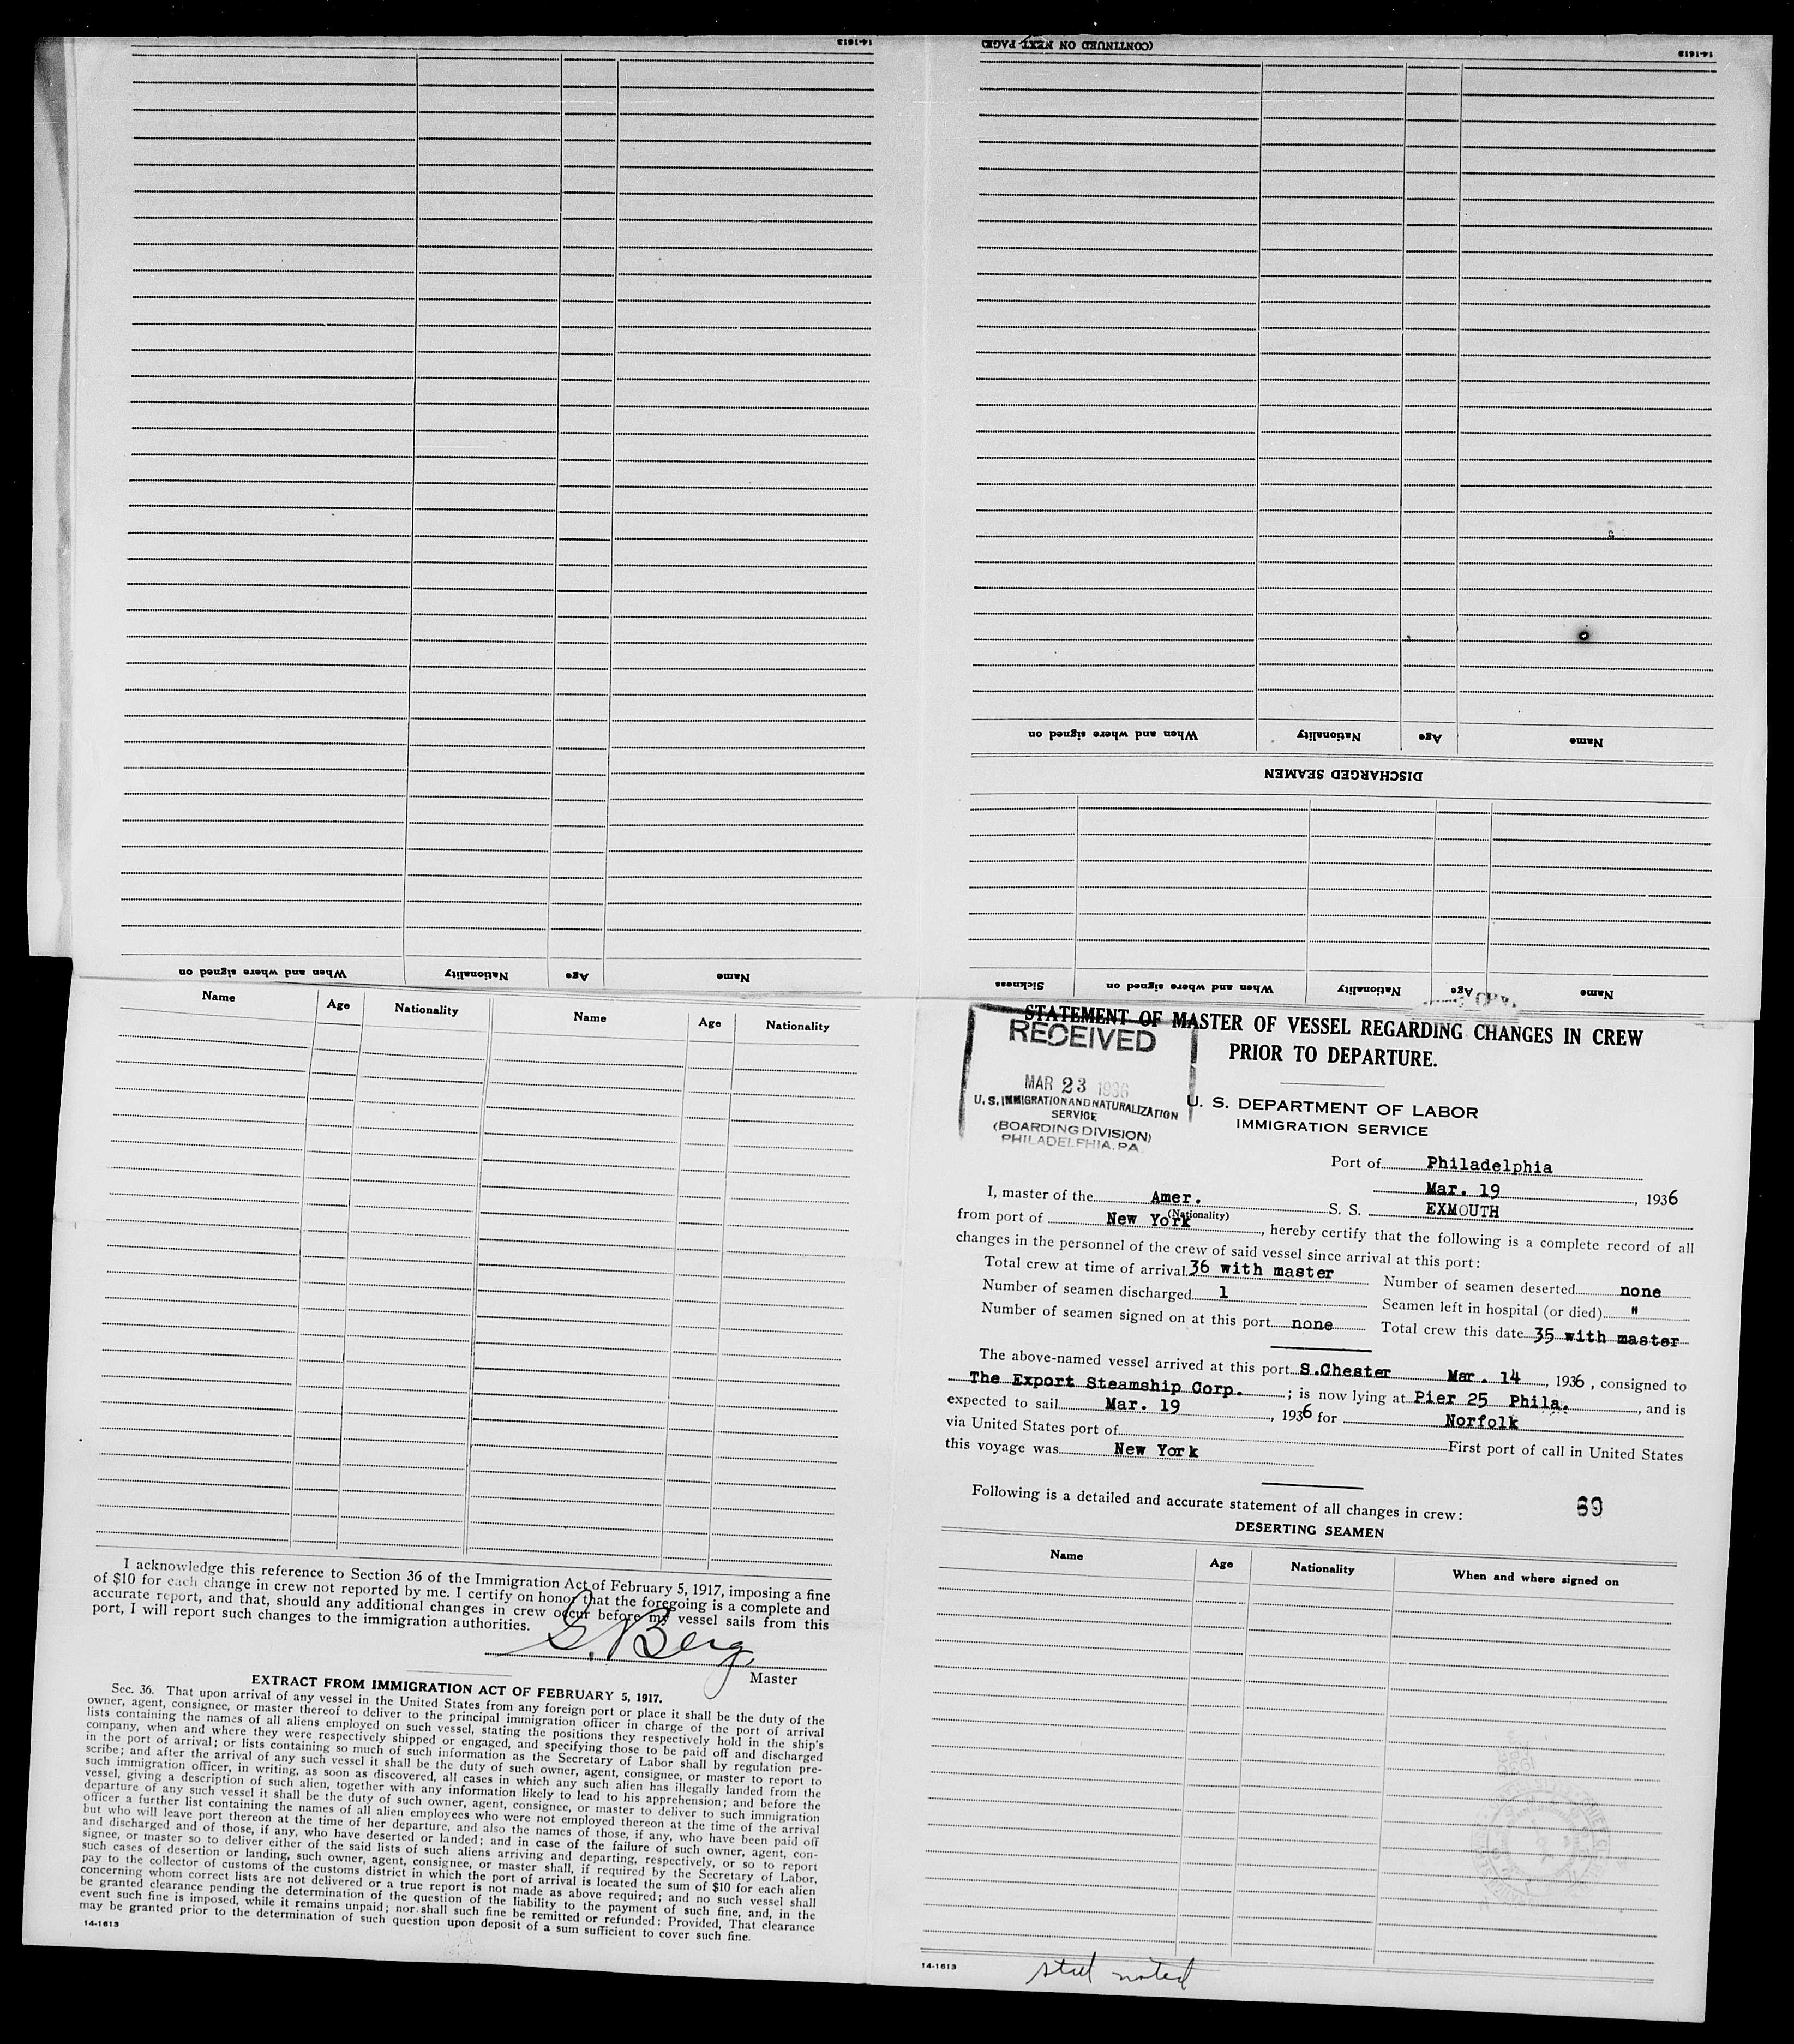 14-1613
(CONTINUED ON NEXT PAGE)
14-1613
When and where signed on
Nationality
Age
Name
DISCHARGED SEAMEN
Name
Age
Nationality
When and where signed on
Name
Age
Nationality
When and where signed on
Sickness
Name
Age
Nationality
Name
Age
Nationality
I acknowledge this reference to Section 36 of the Immigration Act of February 5, 1917, imposing a fine
of $10 for each change in crew not reported by me. I certify on honor that the foregoing is a complete and
accurate report, and that, should any additional changes in crew occur before my vessel sails from this
port, I will report such changes to the immigration authorities.
G. Berg
Master
EXTRACT FROM IMMIGRATION ACT OF FEBRUARY 5, 1917.
Sec. 36. That upon arrival of any vessel in the United States from any foreign port or place it shall be the duty of the
owner, agent, consignee, or master thereof to deliver to the principal immigration officer in charge of the port of arrival
lists containing the names of all aliens employed on such vessel, stating the positions they respectively hold in the ship's
company, when and where they were respectively shipped or engaged, and specifying those to be paid off and discharged
in the port of arrival; or lists containing so much of such information as the Secretary of Labor shall by regulation pre-
scribe; and after the arrival of any such vessel it shall be the duty of such owner, agent, consignee, or master to report to
such immigration officer, in writing, as soon as discovered, all cases in which any such alien has illegally landed from the
vessel, giving a description of such alien, together with any information likely to lead to his apprehension; and before the
departure of any such vessel it shall be the duty of such owner, agent, consignee, or master to deliver to such immigration
officer a further list containing the names of all alien employees who were not employed thereon at the time of the arrival
but who will leave port thereon at the time of her departure, and also the names of those, if any, who have been paid off
and discharged and of those, if any, who have deserted or landed; and in case of the failure of such owner, agent, con-
signee, or master so to deliver either of the said lists of such aliens arriving and departing, respectively, or so to report
such cases of desertion or landing, such owner, agent, consignee, or master shall, if required by the Secretary of Labor,
pay to the collector of customs of the customs district in which the port of arrival is located the sum of $10 for each alien
concerning whom correct lists are not delivered or a true report is not made as above required; and no such vessel shall
be granted clearance pending the determination of the question of the liability to the payment of such fine, and, in the
event such fine is imposed, while it remains unpaid; nor shall such fine be remitted or refunded: Provided, That clearance
may be granted prior to the determination of such question upon deposit of a sum sufficient to cover such fine.
14-1613
STATEMENT OF MASTER OF VESSEL REGARDING CHANGES IN CREW
PRIOR TO DEPARTURE.
RECEIVED
MAR 23 1936
U. S. IMMIGRATION AND NATURALIZATION
SERVICE
(BOARDING DIVISION)
PHILADELPHIA, PA.
U. S. DEPARTMENT OF LABOR
IMMIGRATION SERVICE
Port of Philadelphia
Mar. 19, 1936
I, master of the Amer. S. S. EXMOUTH
(Nationality)
from port of New York, hereby certify that the following is a complete record of all
changes in the personnel of the crew of said vessel since arrival at this port:
Total crew at time of arrival 36 with master Number of seamen deserted none
Number of seamen discharged 1 Seamen left in hospital (or died) "
Number of seamen signed on at this port none Total crew this date 35 with master
The above-named vessel arrived at this port S.Chester Mar. 14, 1936, consigned to
The Export Steamship Corp.; is now lying at Pier 25 Phila., and is
expected to sail Mar. 19, 1936 for Norfolk
via United States port of First port of call in United States
this voyage was New York
Following is a detailed and accurate statement of all changes in crew:
69
DESERTING SEAMEN
Name
Age
Nationality
When and where signed on
14-1613